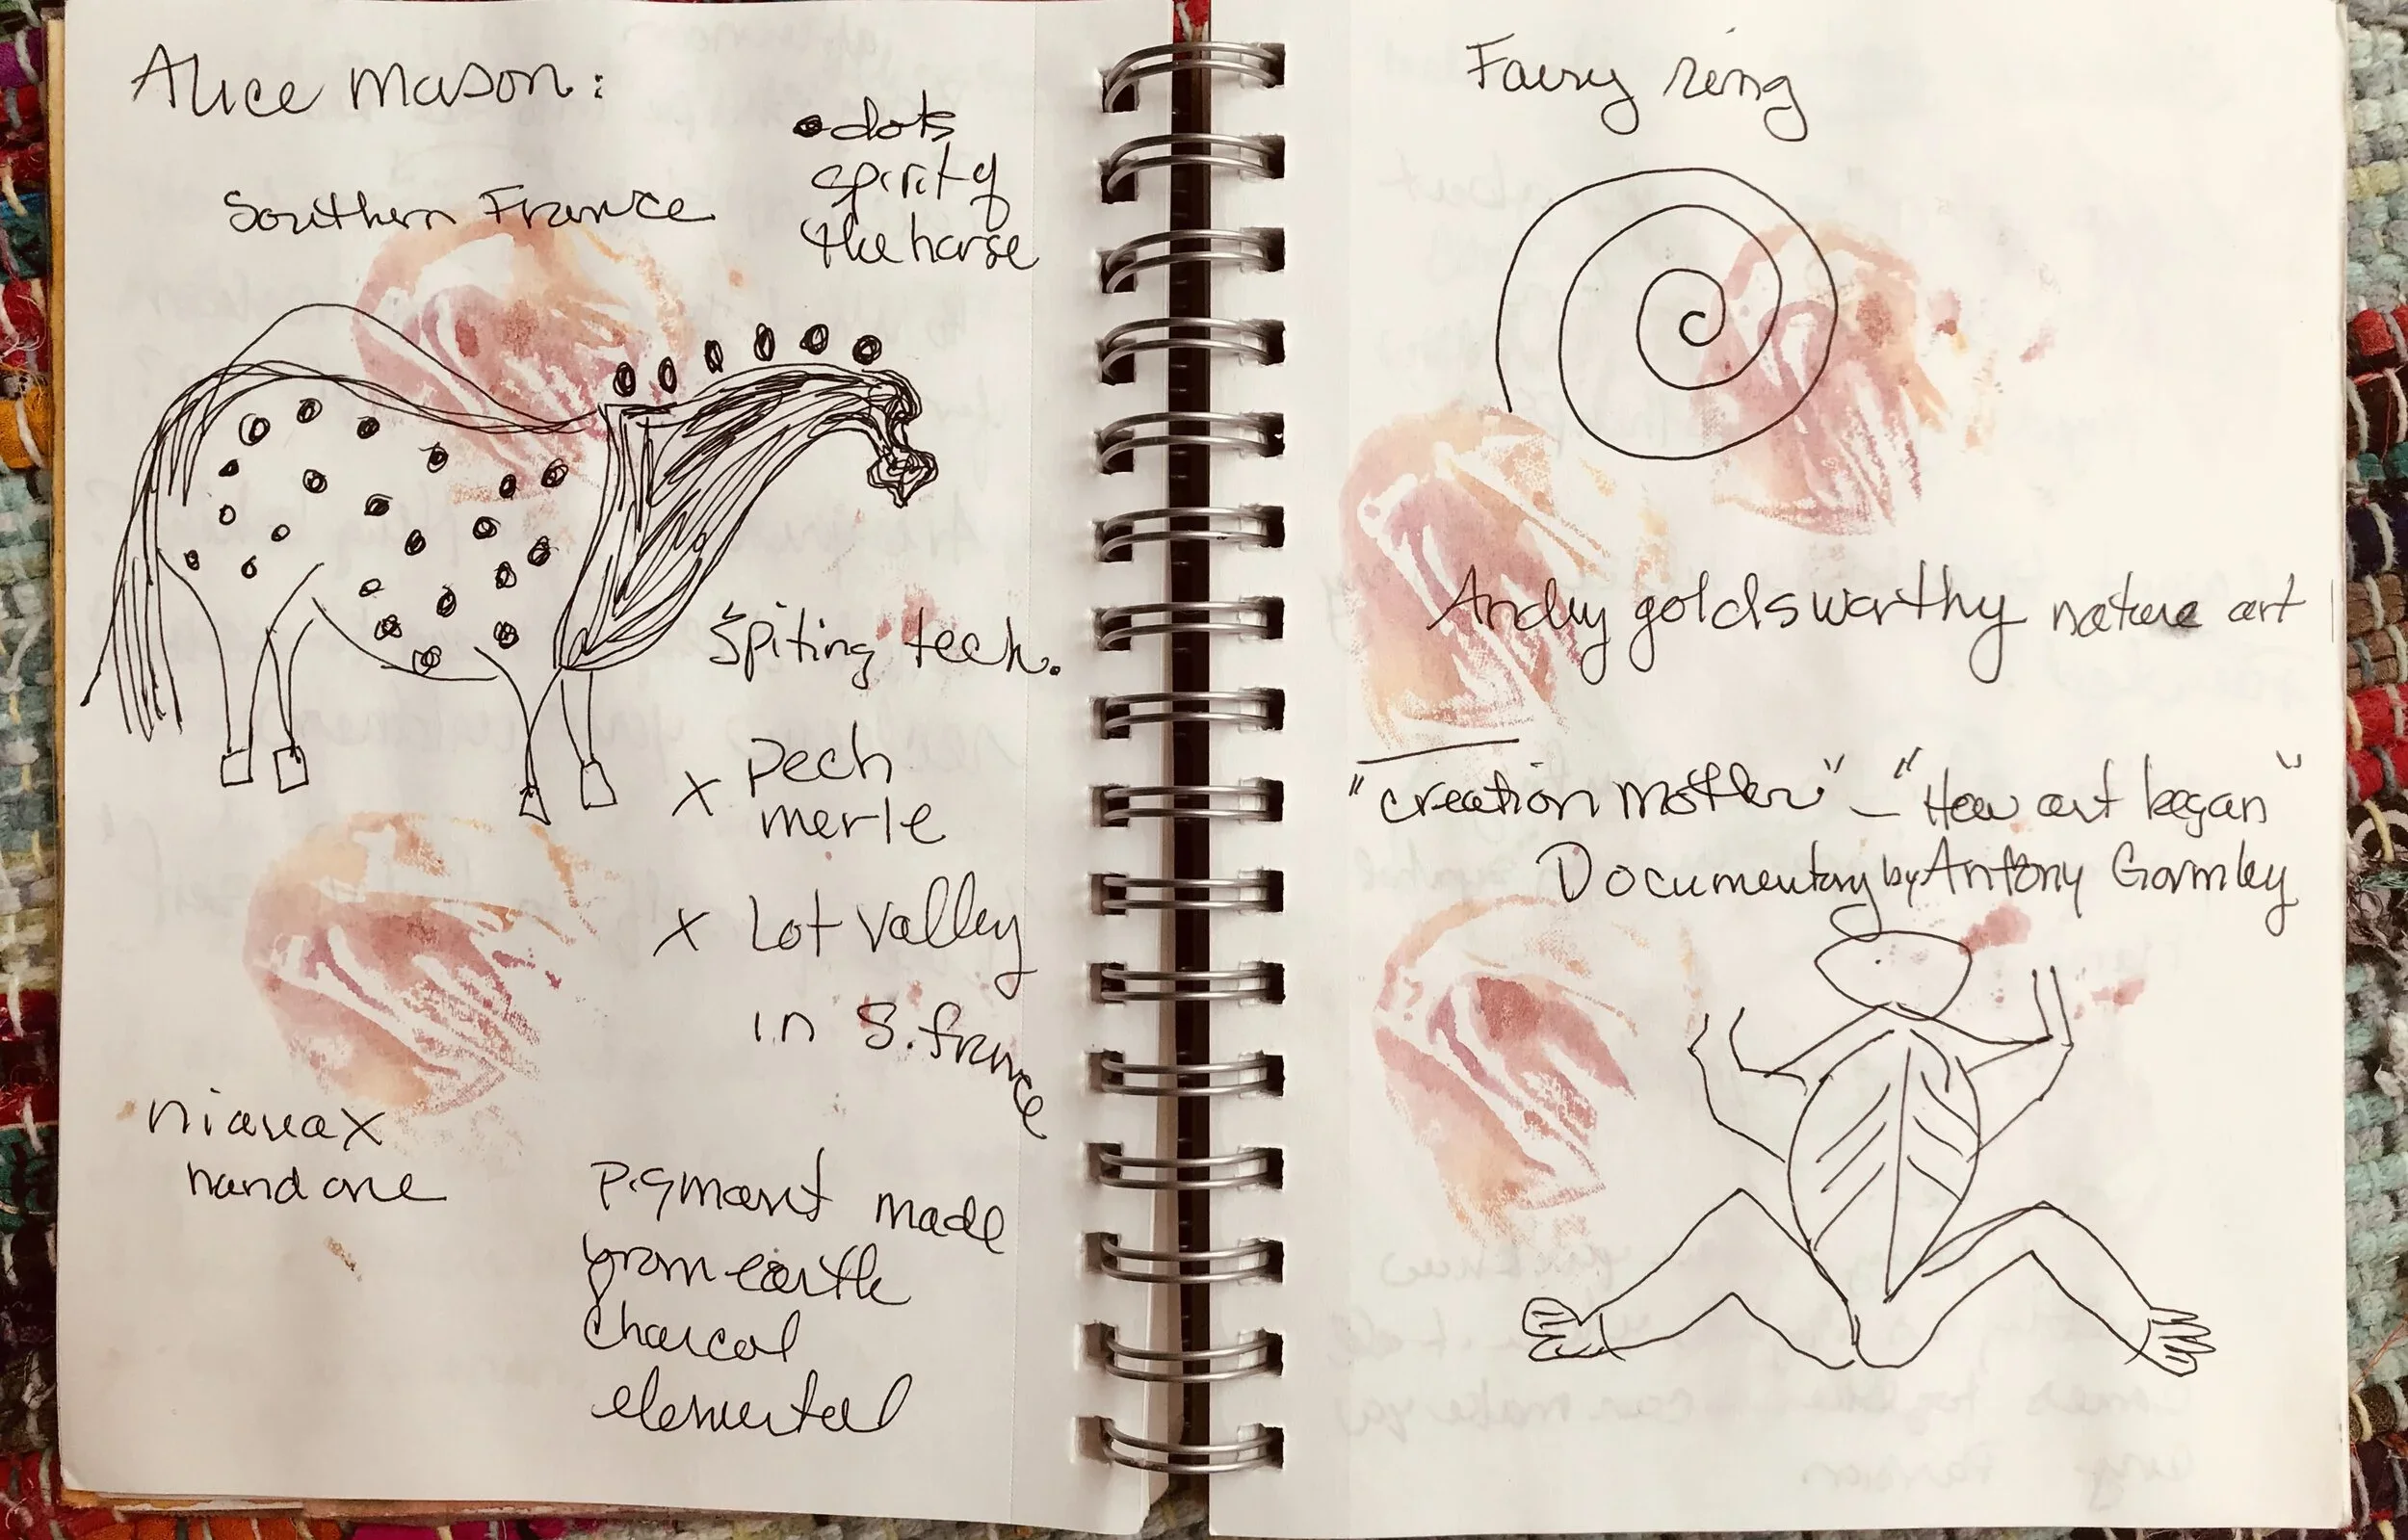 Alice Mason:
Southern France
dots
spirit of
the horse
Spiting tech.
x pech
merle
x Lot Valley
in S. france
niauax
hand one
Pigment made
from earth
charcol
elemental
Fairy ring
Andy goldsworthy nature art
"creation Mother" - "How art began"
Documentary by Antony Gormley